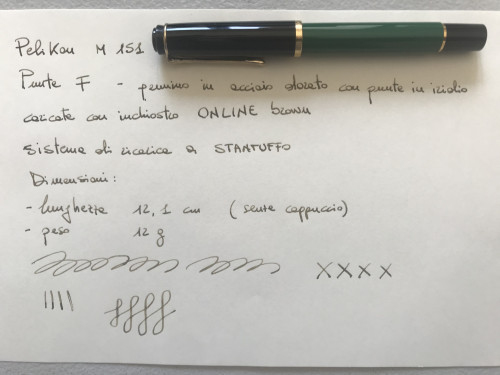 Pelikan M 151
Punta F - pennino in acciaio dorato con punta in iridio
caricata con inchiostro ONLINE brown
sistema di ricarica a STANTUFFO
Dimensioni:
- lunghezza 12,1 cm (senza cappuccio)
- peso 12 g
XXXX